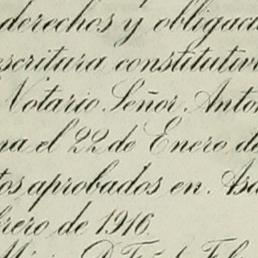 derechos y obligacio
escritura constitutiva
Notario Señor Anto
na el 22 de Enero de
tos aprobados en Asa
brero de 1916.